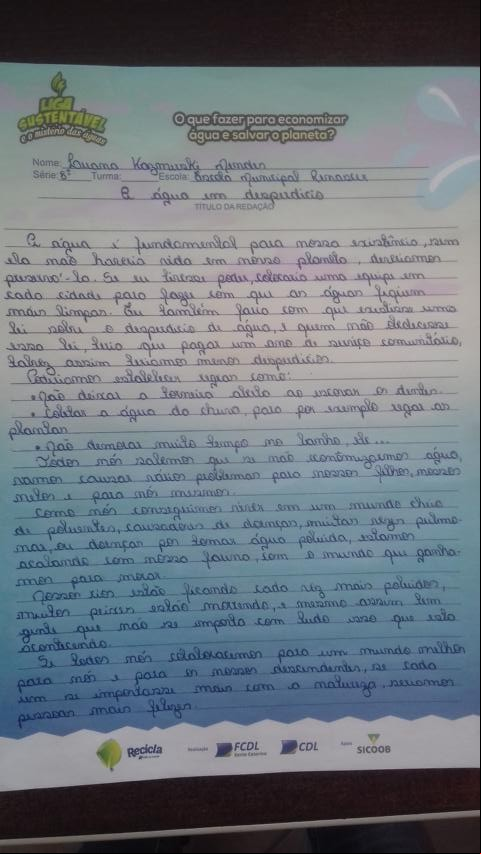 LIGA
SUSTENTÁVEL
e o mistério das águas
O que fazer para economizar
água e salvar o planeta?
Nome: Kazmirski Mendes
Série: 8º Turma: Escola: Escola Municipal Renascer
A água em desperdício
TÍTULO DA REDAÇÃO
A água é fundamental para nossa existência, sem
ela não haveria vida em nosso planeta, deveríamos
preservá-la. Se eu tivesse poder, colocaria uma equipe em
cada cidade para fazer com que as águas fiquem
mais limpas. Eu também faria com que existisse uma
lei sobre o desperdício de água, e quem não obedecesse
essa lei, teria que pagar um ano de serviço comunitário,
talvez assim teríamos menos desperdícios.
Poderíamos estabelecer regras como:
• Não deixar a torneira aberta ao escovar os dentes.
• Coletar a água da chuva, para por exemplo regar as
plantas
• Não demorar muito tempo no banho, etc...
Todos nós sabemos que se não economizarmos água,
vamos causar vários problemas para nossos filhos, nossos
netos e para nós mesmos.
Como nós conseguimos viver em um mundo cheio
de poluentes, causadores de doenças, muitas vezes pulmo-
nas, ou doenças por tomar água poluída, estamos
acabando com nossa fauna, com o mundo que ganha-
mos para morar.
Nossos rios estão ficando cada vez mais poluídos,
muitos peixes estão morrendo, e mesmo assim tem
gente que não se importa com tudo isso que está
acontecendo.
Se todos nós colaborássemos para um mundo melhor
para nós e para os nossos descendentes, se cada
um se importasse mais com a natureza, seríamos
pessoas mais felizes.
Recicla
Realização FCDL Santa Catarina CDL Apoio SICOOB